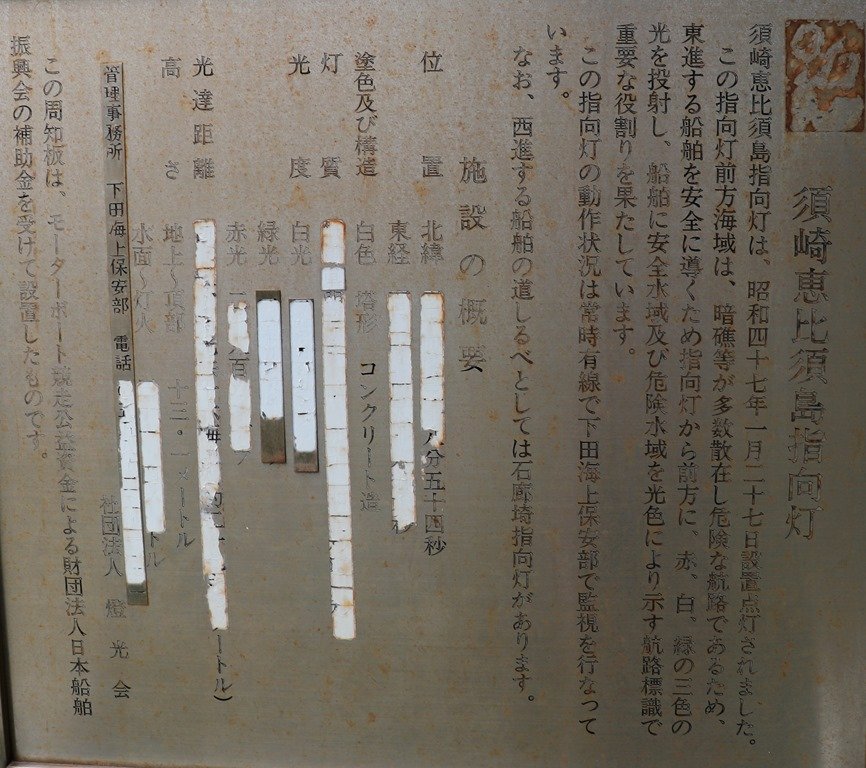 須崎恵比須島指向灯
須崎恵比須島指向灯は、昭和四十七年一月二十七日設置点灯されました。
この指向灯前方海域は、暗礁等が多数散在し危険な航路であるため、
東進する船舶を安全に導くため指向灯から前方に、赤、白、緑の三色の
光を投射し、船舶に安全水域及び危険水域を光色により示す航路標識で
重要な役割りを果たしています。
この指向灯の動作状況は常時有線で下田海上保安部で監視を行なって
います。
なお、西進する船舶の道しるべとしては石廊埼指向灯があります。
施設の概要
位置 北緯 分五十四秒
東経 秒
塗色及び構造 白色 塔形 コンクリート造
灯質
光度 白光
緑光
赤光
光達距離 ートル)
高さ 地上〜頂部 十三・一メートル
水面〜灯火 トル
管理事務所 下田海上保安部 電話
社団法人 燈光会
この周知板は、モーターボート競走公益資金による財団法人日本船舶
振興会の補助金を受けて設置したものです。